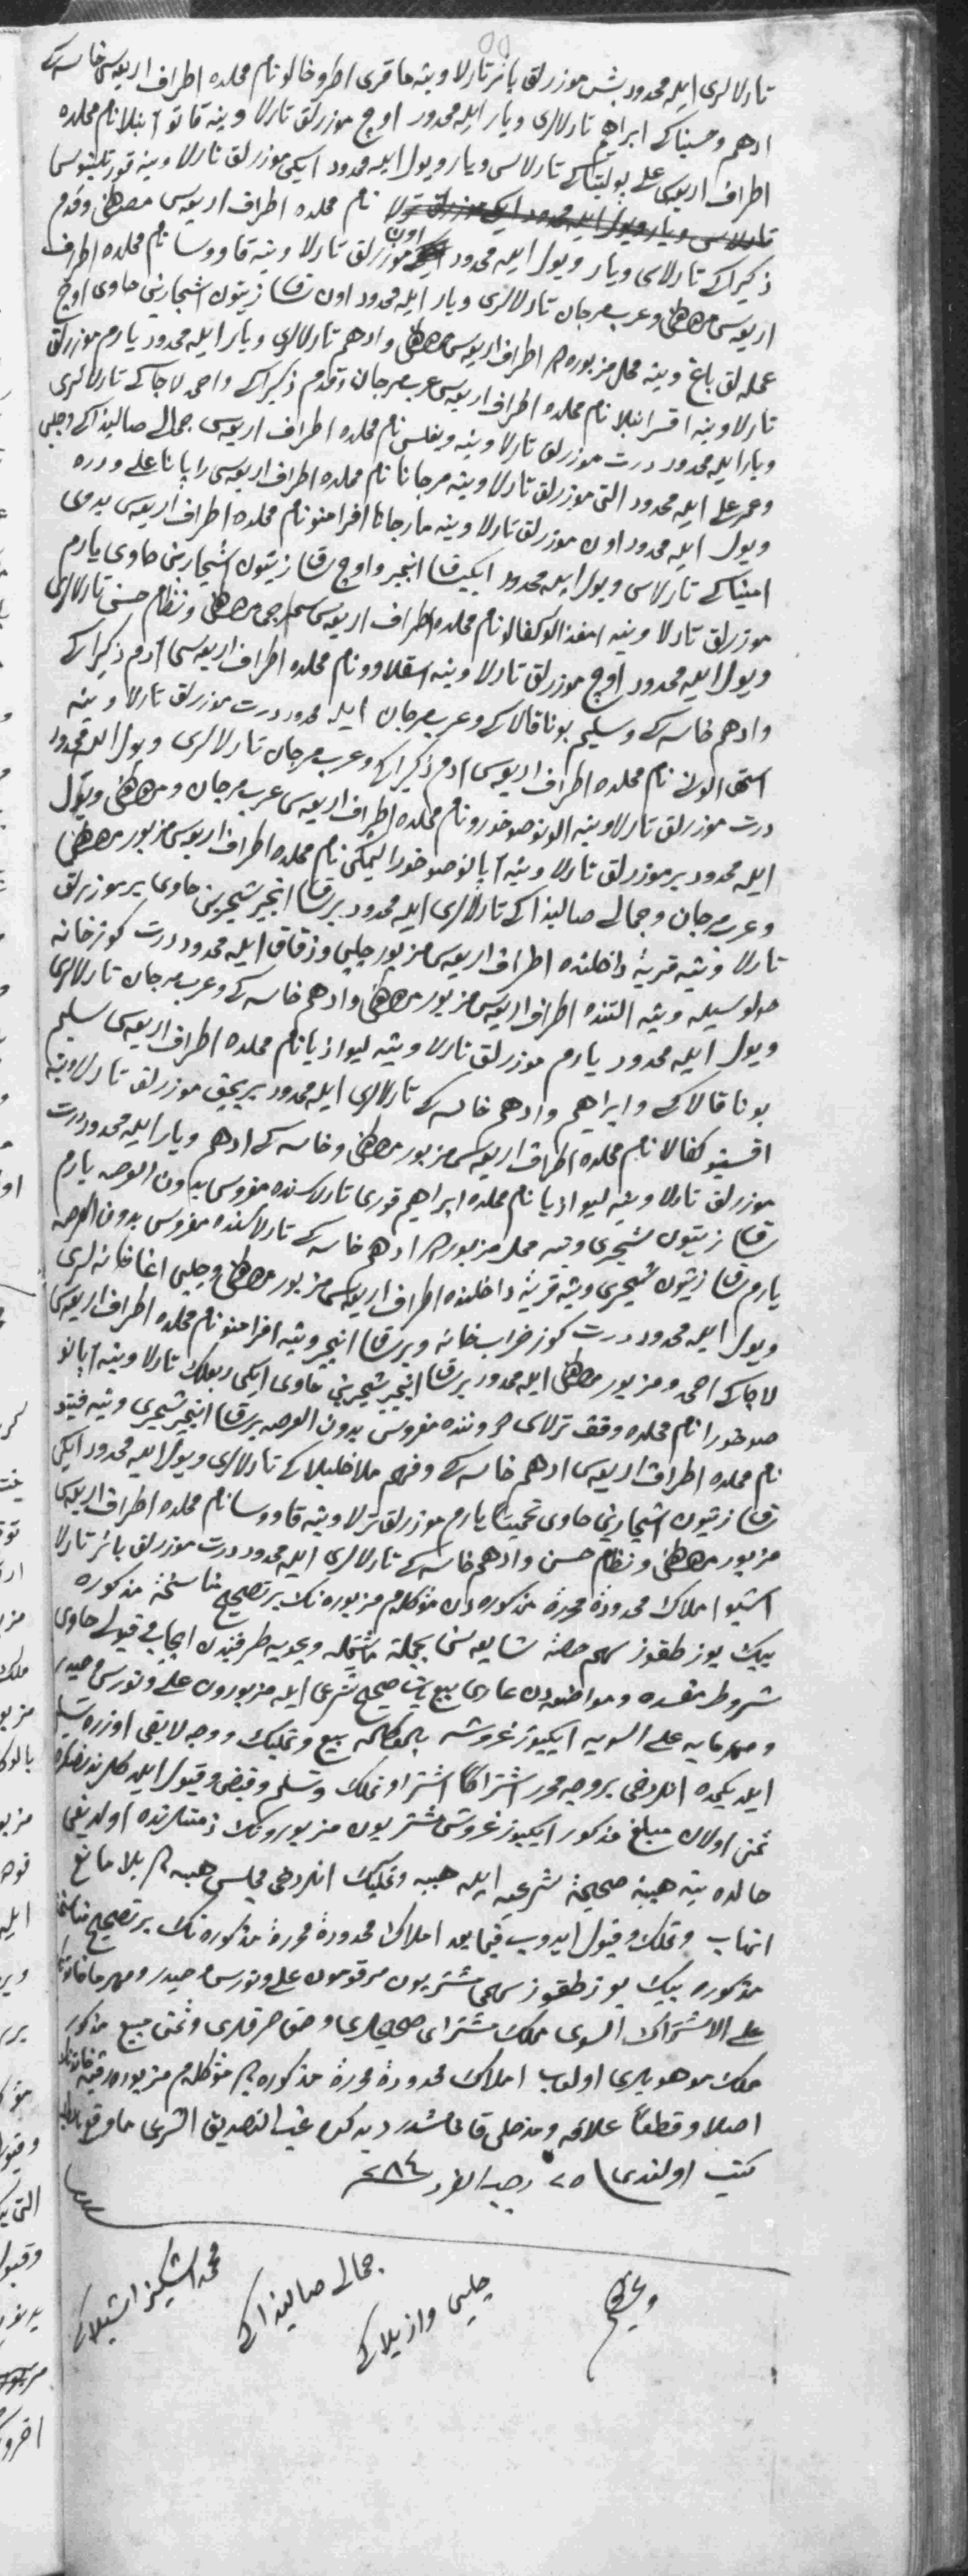 تارلالری ایله محدود بش موزرلق بائر تارلا وینه ماقری اطروخالو نام محلده اطراف اربعه‌سی خاسه‌کے
ادهم و حسیناکے ابراهیم تارلالری ویار ایله محدود اوچ موزرلق تارلا وینه قاتو آنبلا نام محلده
اطراف اربعه‌سی علی بولیتاکے تارلاسی ویار ویول ایله محدود ایکی موزرلق تارلا وینه
نام محلده اطراف اربعه‌سی مصطفی وقدم
ذکیراکے تارلاسی ویار ویول ایله محدود اون موزرلق تارلا وینه قاووسا نام محلده اطراف
اربعه‌سی مصطفی وعرب مرجان تارلالری ویار ایله محدود اون رقبا زیتون اشجارینی حاوی اوچ
عمله‌لق باغ وینه محل مزبورده اطراف اربعه‌سی مصطفی وادهم تارلالری ویار ایله محدود یارم موزرلق
تارلا وینه اقسرانبلا نام محلده اطراف اربعه‌سی عرب مرجان وقدم ذکیراکے واحمی لاجاکے تارلالری
ویار ایله محدود درت موزرلق تارلا وینه ویغلسی نام محلده اطراف اربعه‌سی جمالی صالیذاکے وچلبی
وعمر علی ایله محدود التی موزرلق تارلا وینه مرجانا نام محلده اطراف اربعه‌سی راپانا علی ودره
ویول ایله محدود اون موزرلق تارلا وینه مارجانا افرامنو نام محلده اطراف اربعه‌سی بدوی
امیناکے تارلاسی ویول ایله محدود ایکی رقبا انجیر واوچ رقبا زیتون اشجارینی حاوی یارم
موزرلق تارلا وینه امغذالوکفالو نام محلده اطراف اربعه‌سی سمرجی مصطفی ونظام حسن تارلالری
ویول ایله محدود اوچ موزرلق تارلا وینه اسقلاوو نام محلده اطراف اربعه‌سی آدم ذکیراکے
وادهم خاسه‌کے وسلیم بوناقالاکے وعرب مرجان ایله محدود درت موزرلق تارلا وینه
استی الونے نام محلده اطراف اربعه‌سی ادم ذکیراکے وعرب مرجان تارلالری ویول ایله محدود
درت موزرلق تارلا وینه الونوصوخورو نام محلده اطراف اربعه‌سی عرب مرجان ومصطفی ویول
ایله محدود بر موزرلق تارلا وینه آپانوصوخورا لیمکی نام محلده اطراف اربعه‌سی مزبور مصطفی
وعرب مرجان وجمالی صالیذاکے تارلالری ایله محدود بر رقبا انجیر شجرینی حاوی بر موزرلق
تارلا وینه قریهٔ داخلنده اطراف اربعه‌سی مزبور چلبی وزقاق ایله محدود درت کوز خانه
حولوسیله وینه التنده اطراف اربعه‌سی مزبور مصطفی وادهم خاسه‌کے وعرب مرجان تارلالری
ویول ایله محدود یارم موزرلق تارلا وینه لیواذیا نام محلده اطراف اربعه‌سی سلیم
بوناقالاکے وابراهیم وادهم خاسه‌کے تارلالری ایله محدود بر بچق موزرلق تارلا وینه
اقسینو کفالا نام محلده اطراف اربعه‌سی مزبور مصطفی وخاسه‌کے ادهم ویار ایله محدود درت
موزرلق تارلا وینه لیواذیا نام محلده ابراهیم قوری تارلاسنده مغروس بدون العرصه یارم
رقبا زیتون شجری وینه محل مزبورده ادهم خاسه‌کے تارلاسنده مغروس بدون العرصه
یارم رقبا زیتون شجری وینه قریهٔ داخلنده اطراف اربعه‌سی مزبور مصطفی وچلبی اغا خانه‌لری
ویول ایله محدود درت کوز خراب خانه وبر رقبا انجیر وینه افرامنو نام محلده اطراف اربعه‌سی
لاجاکے احمی ومزبور مصطفی ایله محدود بر رقبا انجیر شجرینی حاوی ایکی ربعلک تارلا وینه آپانو
صوخورا نام محلده وقف ترلاسی درونده مغروس بدون العرصه بر رقبا انجیر شجری وینه
نام محلده اطراف اربعه‌سی ادهم خاسه‌کے وفهیم ملاخلیلاکے تارلالری ویول ایله محدود ایکی
رقبا زیتون اشجارینی حاوی تخمیناً یارم موزرلق ترلا وینه قاووسا نام محلده اطراف اربعه‌سی
مزبور مصطفی ونظام حسن وادهم خاسه‌کے تارلالری ایله محدود درت موزرلق بائر تارلا
اشبو املاک محدودهٔ محررهٔ مذکوره‌دن مؤکلهٔم مزبوره‌نک بر تصحیح مناسخهٔ مذکوره
بیک یوز طقوز سهم حصهٔ شایعه‌سنی بجملة ما تشتمله ویحویه طرفیندن ایجابی قبولی حاوی
شروط مفسده ومواضعه‌دن عاری بیع بات صحیح شرعی ایله مزبورون علی ونورس وحیدر
ومهرمایه علی السویه ایکیوز غروشه بالمکالمه بیع وتملیک ووجه لایقی اوزره تسلیم
ایلدیکمده انلردخی بروجه محرر اشتراکاً اشترا وتملک وتسلم وقبض وقبول ایلدکلرندنصکره
ثمنی اولان مبلغ مذکور ایکیوز غروشی مشتریون مزبورونک ذمتلرنده اولدیغی
حالده ینه هبهٔ صحیحهٔ شرعیه ایله هبه وتملیک انلردخی مجلس هبه‌ده بلا مانع
اتهاب وتملک وقبول ایدوب فیمابعد املاک محدودهٔ محررهٔ مذکوره‌نک بر تصحیح مناسخهٔ
مذکوره بیک یوز طقوز سهمی مشتریون مرقومون علی ونورس وحیدر ومهرماه خاتونک
علی الاشتراک السوی ملک مشترای صحیحلری وحق صرفلری وثمن مبیع مذکور
ملک موهوبلری اولوب املاک محدودهٔ محررهٔ مذکوره‌ده مؤکلهٔم مزبوره رقیه خاتونک
اصلا وقطعاً علاقه ومدخلی قالمامشدر دیدکده غب التصدیق الشرعی ماوقع بالطلب
کتب اولندی ٢٥ رجب الفرد ٢٨٤
وغیرهم
چلبی وازیلاکے
جمالی صالیذاکے
محمد اشکیز اشبلاکے